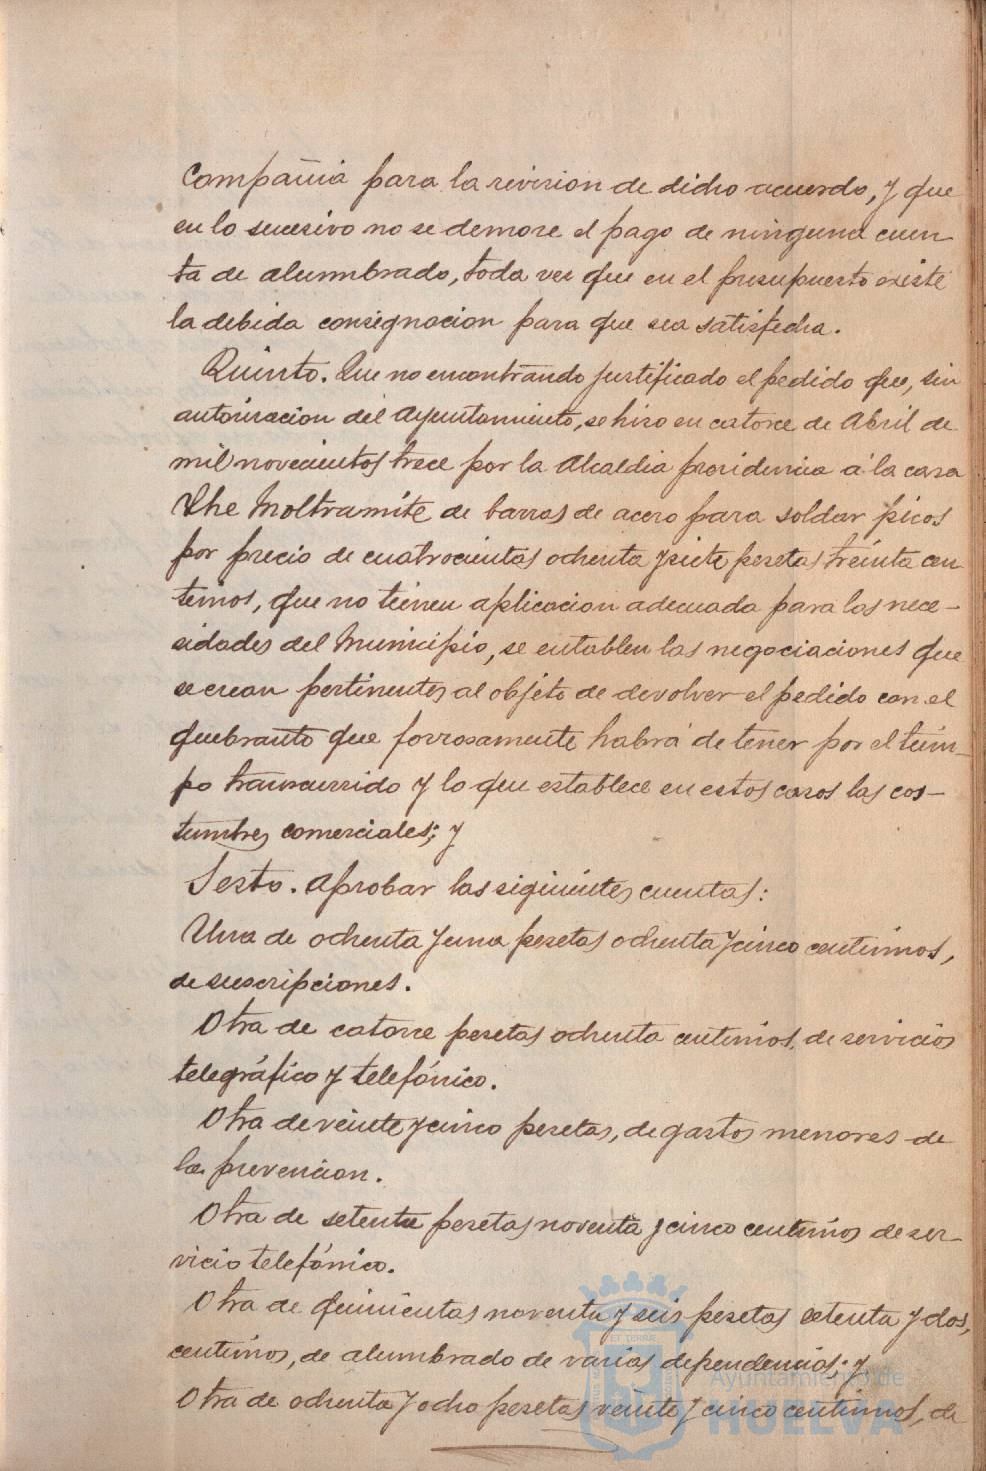 Compañia para la revision de dicho acuerdo, y que
en lo sucesivo no se demore el pago de ninguna cuen
ta de alumbrado, toda ves que en el presupuesto existe
la debida consignacion para que sea satisfecha.
Quinto. Que no encontrando justificado el pedido que, sin
autorizacion del Ayuntamiento, se hizo en catorce de Abril de
mil novecientos trece por la Alcaldia presidencia á la casa
The Moltramite de barras de acero para soldar picos
por precio de cuatrocientas ochenta y siete pesetas treinta cen
timos, que no tienen aplicacion adecuada para las nece-
sidades del Municipio, se entablen las negociaciones que
se crean pertinentes al objeto de devolver el pedido con el
quebranto que forzosamente habrá de tener por el tiem-
po transcurrido y lo que establece en estos casos las cos-
tumbres comerciales; y
Sesto. Aprobar las siguientes cuentas:
Una de ochenta y una pesetas ochenta y cinco centimos,
de suscripciones.
Otra de catorce pesetas ochenta centimos, de servicios
telegráfico y telefónico.
Otra de veinte y cinco pesetas, de gastos menores de
la prevencion.
Otra de setenta pesetas noventa y cinco centimos de ser-
vicio telefónico.
Otra de quinientas noventa y seis pesetas setenta y dos
centimos, de alumbrado de varias dependencias; y
Otra de ochenta y ocho pesetas veinte y cinco centimos, de
Ayuntamiento de
HUELVA